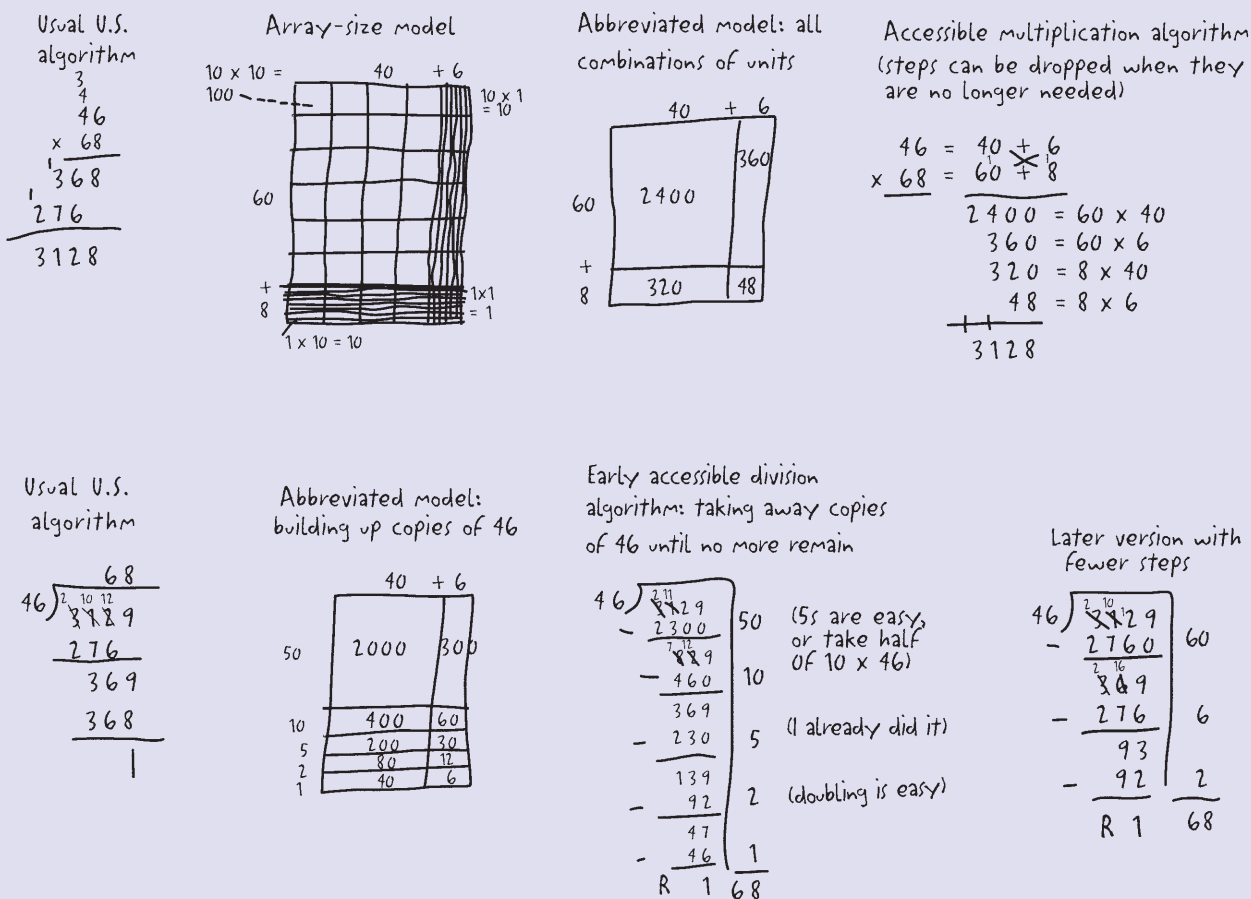 Usual U.S.
algorithm
3
4
46
x 68
1
368
1
276
3128
Array-size model
10 x 10 =
100
40 + 6
10 x 1
= 10
60
+
8
1x1
= 1
1 x 10 = 10
Abbreviated model: all
combinations of units
40 + 6
60
2400
360
+
8
320
48
Accessible multiplication algorithm
(steps can be dropped when they
are no longer needed)
46 = 40 + 6
x 68 = 60 + 8
1 1
2400 = 60 x 40
360 = 60 x 6
320 = 8 x 40
48 = 8 x 6
3128
Usual U.S.
algorithm
68
2 10 12
46)3129
276
369
368
1
Abbreviated model:
building up copies of 46
40 + 6
50 2000 300
10 400 60
5 200 30
2 80 12
1 40 6
Early accessible division
algorithm: taking away copies
of 46 until no more remain
2 11
46)3129
- 2300 50 (5s are easy,
or take half
of 10 x 46)
7 12
829
- 460 10
369
- 230 5 (I already did it)
139
- 92 2 (doubling is easy)
47
- 46 1
R 1 68
Later version with
fewer steps
2 10 1
46)3129
- 2760 60
2 16
369
- 276 6
93
- 92 2
R 1 68